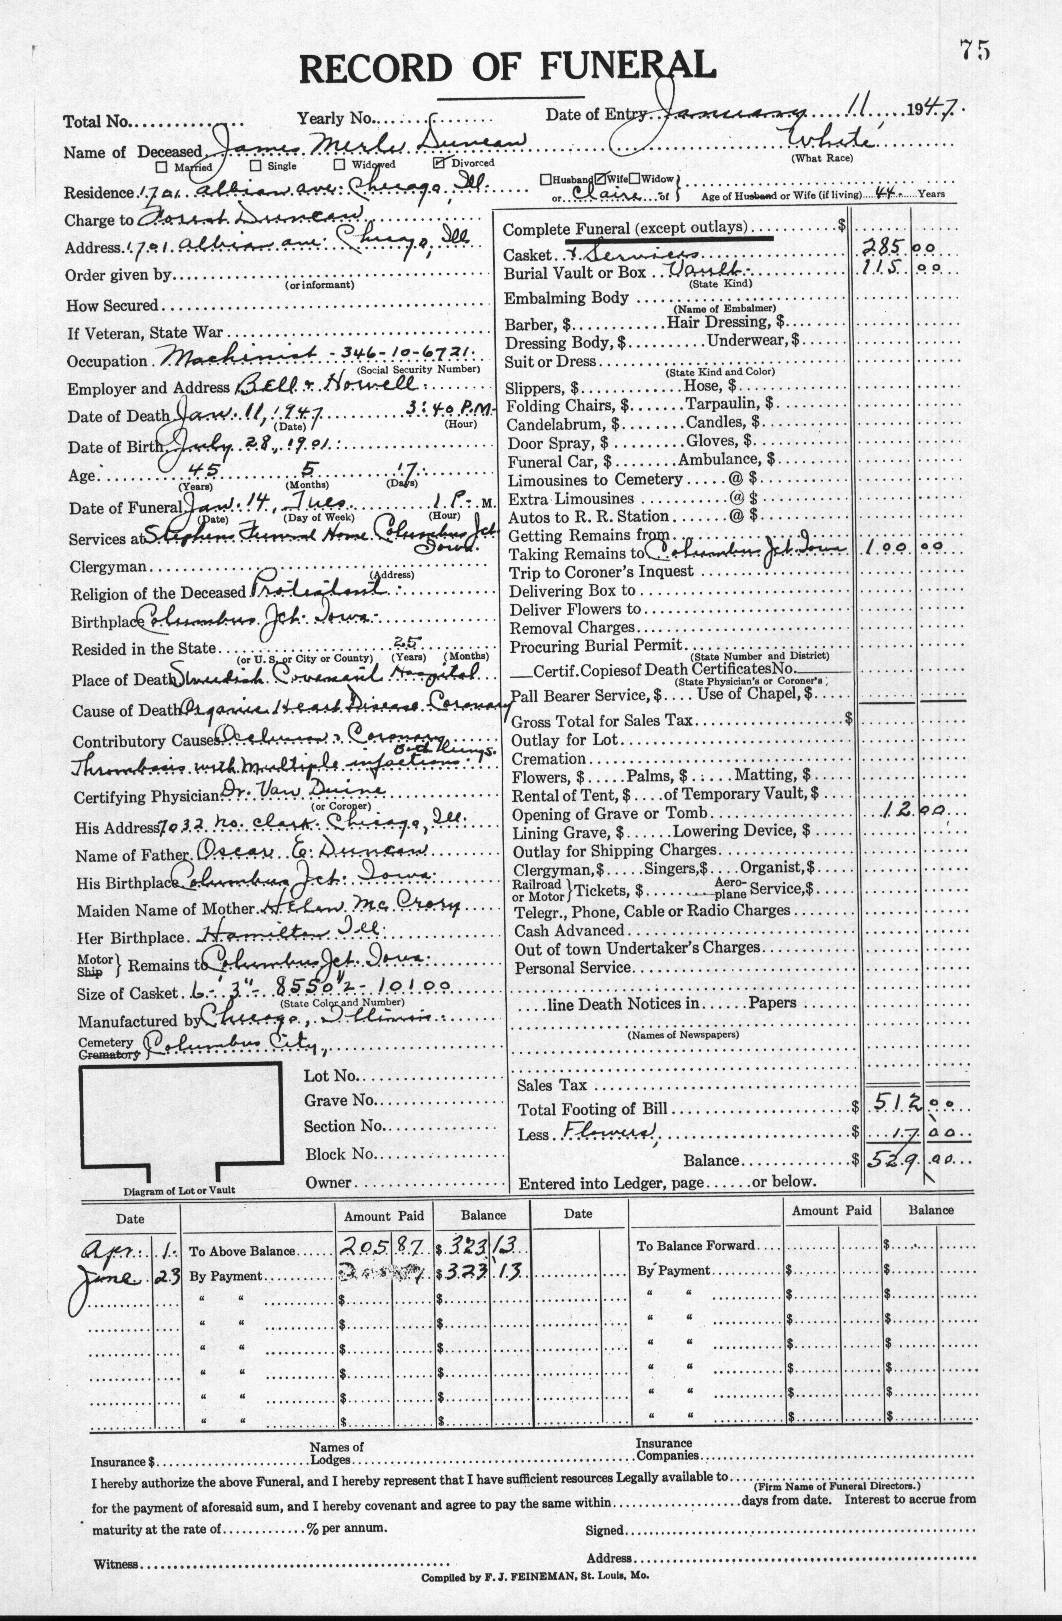 75
RECORD OF FUNERAL
Total No. Yearly No. Date of Entry January 11, 1947.
Name of Deceased James Merle Duncan White
(What Race)
☐ Married ☐ Single ☐ Widowed ☑ Divorced
Residence 1701 Albion ave. Chicago, Ill. ☐Husband☑Wife☐Widow}
or Claire of } Age of Husband or Wife (if living) 44 Years
Charge to Forest Duncan
Address 1701 Albion ave. Chicago, Ill
Order given by
(or informant)
How Secured
If Veteran, State War
Occupation Machinist - 346-10-6721.
(Social Security Number)
Employer and Address Bell & Howell.
Date of Death Jan. 11, 1947 3:40 P.M.
(Date) (Hour)
Date of Birth July 28, 1901.
Age 45 5 17
(Years) (Months) (Days)
Date of Funeral Jan. 14, Tues 1 P. M.
(Date) (Day of Week) (Hour)
Services at Stephens Funeral Home Columbus Jct
Iowa.
Clergyman
(Address)
Religion of the Deceased Protestant.
Birthplace Columbus Jct. Iowa.
Resided in the State 25
(or U. S. or City or County) (Years) (Months)
Place of Death Swedish Covenant Hospital
Cause of Death Organic Heart Disease Coronary
Contributory Causes & Coronary
Thrombosis with multiple both lungs.
Certifying Physician Dr. Van Duine
(or Coroner)
His Address 7032 no. Clark. Chicago, Ill.
Name of Father Oscar E. Duncan
His Birthplace Columbus Jct. Iowa.
Maiden Name of Mother Helen Mc Crory
Her Birthplace Hamilton Ill.
Motor
Ship } Remains to Columbus Jct. Iowa.
Size of Casket 6' 3" - 8550½ - 10100
(State Color and Number)
Manufactured by Chicago, Illinois.
Cemetery
Crematory } Columbus City,
Lot No.
Grave No.
Section No.
Block No.
Owner
Diagram of Lot or Vault
Complete Funeral (except outlays) $
Casket & Services 285 00
Burial Vault or Box Vault 115 00
(State Kind)
Embalming Body
(Name of Embalmer)
Barber, $ Hair Dressing, $
Dressing Body, $ Underwear, $
Suit or Dress
(State Kind and Color)
Slippers, $ Hose, $
Folding Chairs, $ Tarpaulin, $
Candelabrum, $ Candles, $
Door Spray, $ Gloves, $
Funeral Car, $ Ambulance, $
Limousines to Cemetery @ $
Extra Limousines @ $
Autos to R. R. Station @ $
Getting Remains from
Taking Remains to Columbus Jct. Iowa 100 00
Trip to Coroner's Inquest
Delivering Box to
Deliver Flowers to
Removal Charges
Procuring Burial Permit
(State Number and District)
Certif. Copies of Death Certificates No.
(State Physician's or Coroner's)
Pall Bearer Service, $ Use of Chapel, $
Gross Total for Sales Tax $
Outlay for Lot
Cremation
Flowers, $ Palms, $ Matting, $
Rental of Tent, $ of Temporary Vault, $
Opening of Grave or Tomb 12 00
Lining Grave, $ Lowering Device, $
Outlay for Shipping Charges
Clergyman, $ Singers, $ Organist, $
Railroad
or Motor } Tickets, $ Aero-
plane Service, $
Telegr., Phone, Cable or Radio Charges
Cash Advanced
Out of town Undertaker's Charges
Personal Service
line Death Notices in Papers
(Names of Newspapers)
Sales Tax
Total Footing of Bill $ 512 00
Less Flowers, $ 17 00
Balance $ 529 00
Entered into Ledger, page or below.
Date Amount Paid Balance Date Amount Paid Balance
Apr. 1. To Above Balance 205 87 $ 323 13 To Balance Forward $
June 23 By Payment $ 323 13 By Payment $ $
" " $ $ " " $ $
" " $ $ " " $ $
" " $ $ " " $ $
" " $ $ " " $ $
" " $ $ " " $ $
" " $ $ " " $ $
Insurance $ Names of
Lodges Insurance
Companies
I hereby authorize the above Funeral, and I hereby represent that I have sufficient resources Legally available to
(Firm Name of Funeral Directors.)
for the payment of aforesaid sum, and I hereby covenant and agree to pay the same within days from date. Interest to accrue from
maturity at the rate of % per annum. Signed
Witness Address
Compiled by F. J. FEINEMAN, St. Louis, Mo.